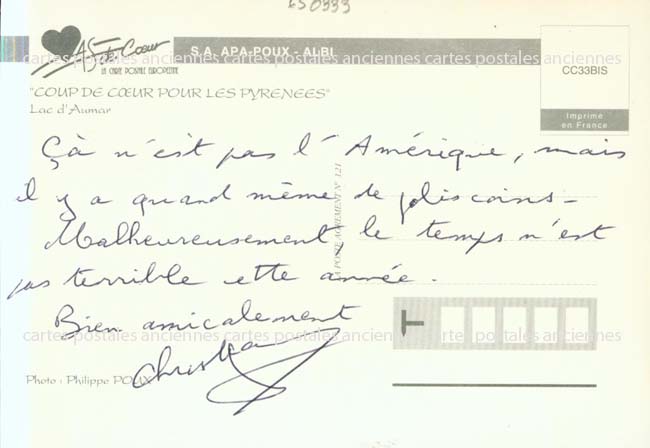 LS0333
AS de Coeur
LA CARTE POSTALE EUROPEENNE
S.A. APA-POUX - ALBI
CC33BIS
Imprimé
en France
cartes postales anciennes cartes postales anciennes cartes postales anciennes
"COUP DE CŒUR POUR LES PYRENEES"
Lac d'Aumar
Çà n'est pas l'Amérique, mais
il y a quand même de jolis coins -
Malheureusement le temps n'est
pas terrible cette année.
Bien amicalement
LA POSTE AGREMENT N° 121
cartes postales anciennes cartes postales anciennes cartes postales anciennes
Photo : Philippe POUX